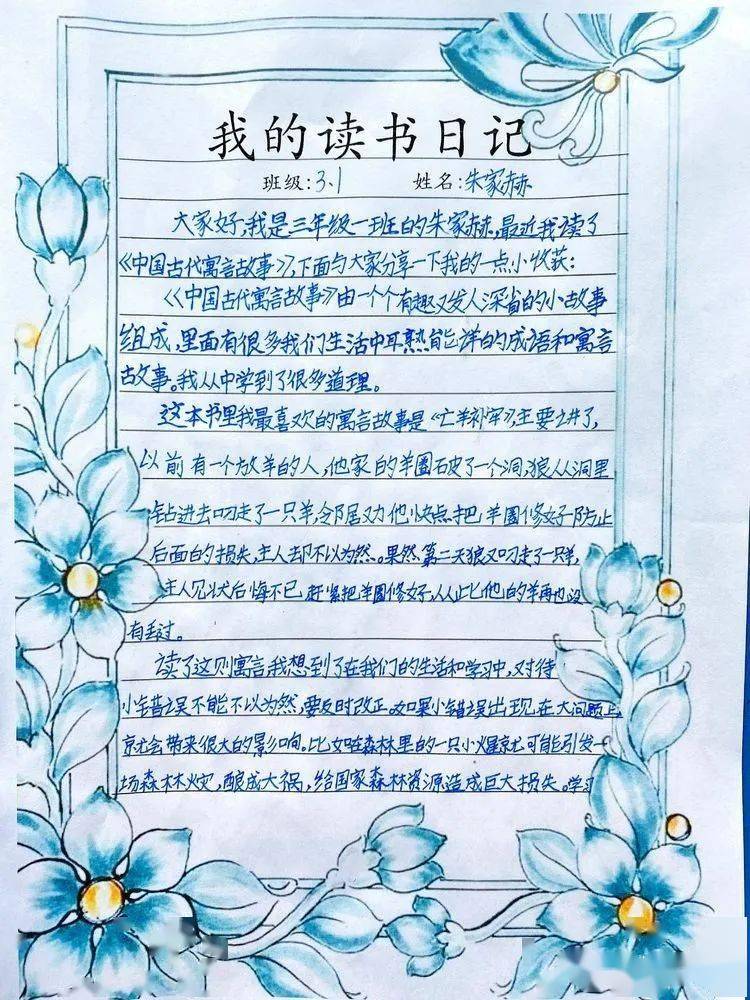 我的读书日记
班级:3.1 姓名:朱家赫
大家好,我是三年级一班的朱家赫,最近我读了
《中国古代寓言故事》,下面与大家分享一下我的一点小收获:
《中国古代寓言故事》由一个个有趣又发人深省的小故事
组成,里面有很多我们生活中耳熟能洋的成语和寓言
故事。我从中学到了很多道理。
这本书里我最喜欢的寓言故事是《亡羊补牢》,主要讲了,
以前有一个放羊的人,他家的羊圈破了一个洞,狼从洞里
钻进去叼走了一只羊,邻居劝他快点把羊圈修好防止
后面的损失,主人却不以为然。果然第二天狼又叼走了一只羊,
主人见状后悔不已,赶紧把羊圈修好,从此他的羊再也没
有丢过。
读了这则寓言我想到了在我们的生活和学习中,对待
小错误不能不以为然,要及时改正。如果小错误出现在大问题上,
就会带来很大的影响。比如在森林里的一只小火星就可能引发一
场森林火灾,酿成大祸,给国家森林资源造成巨大损失。学习